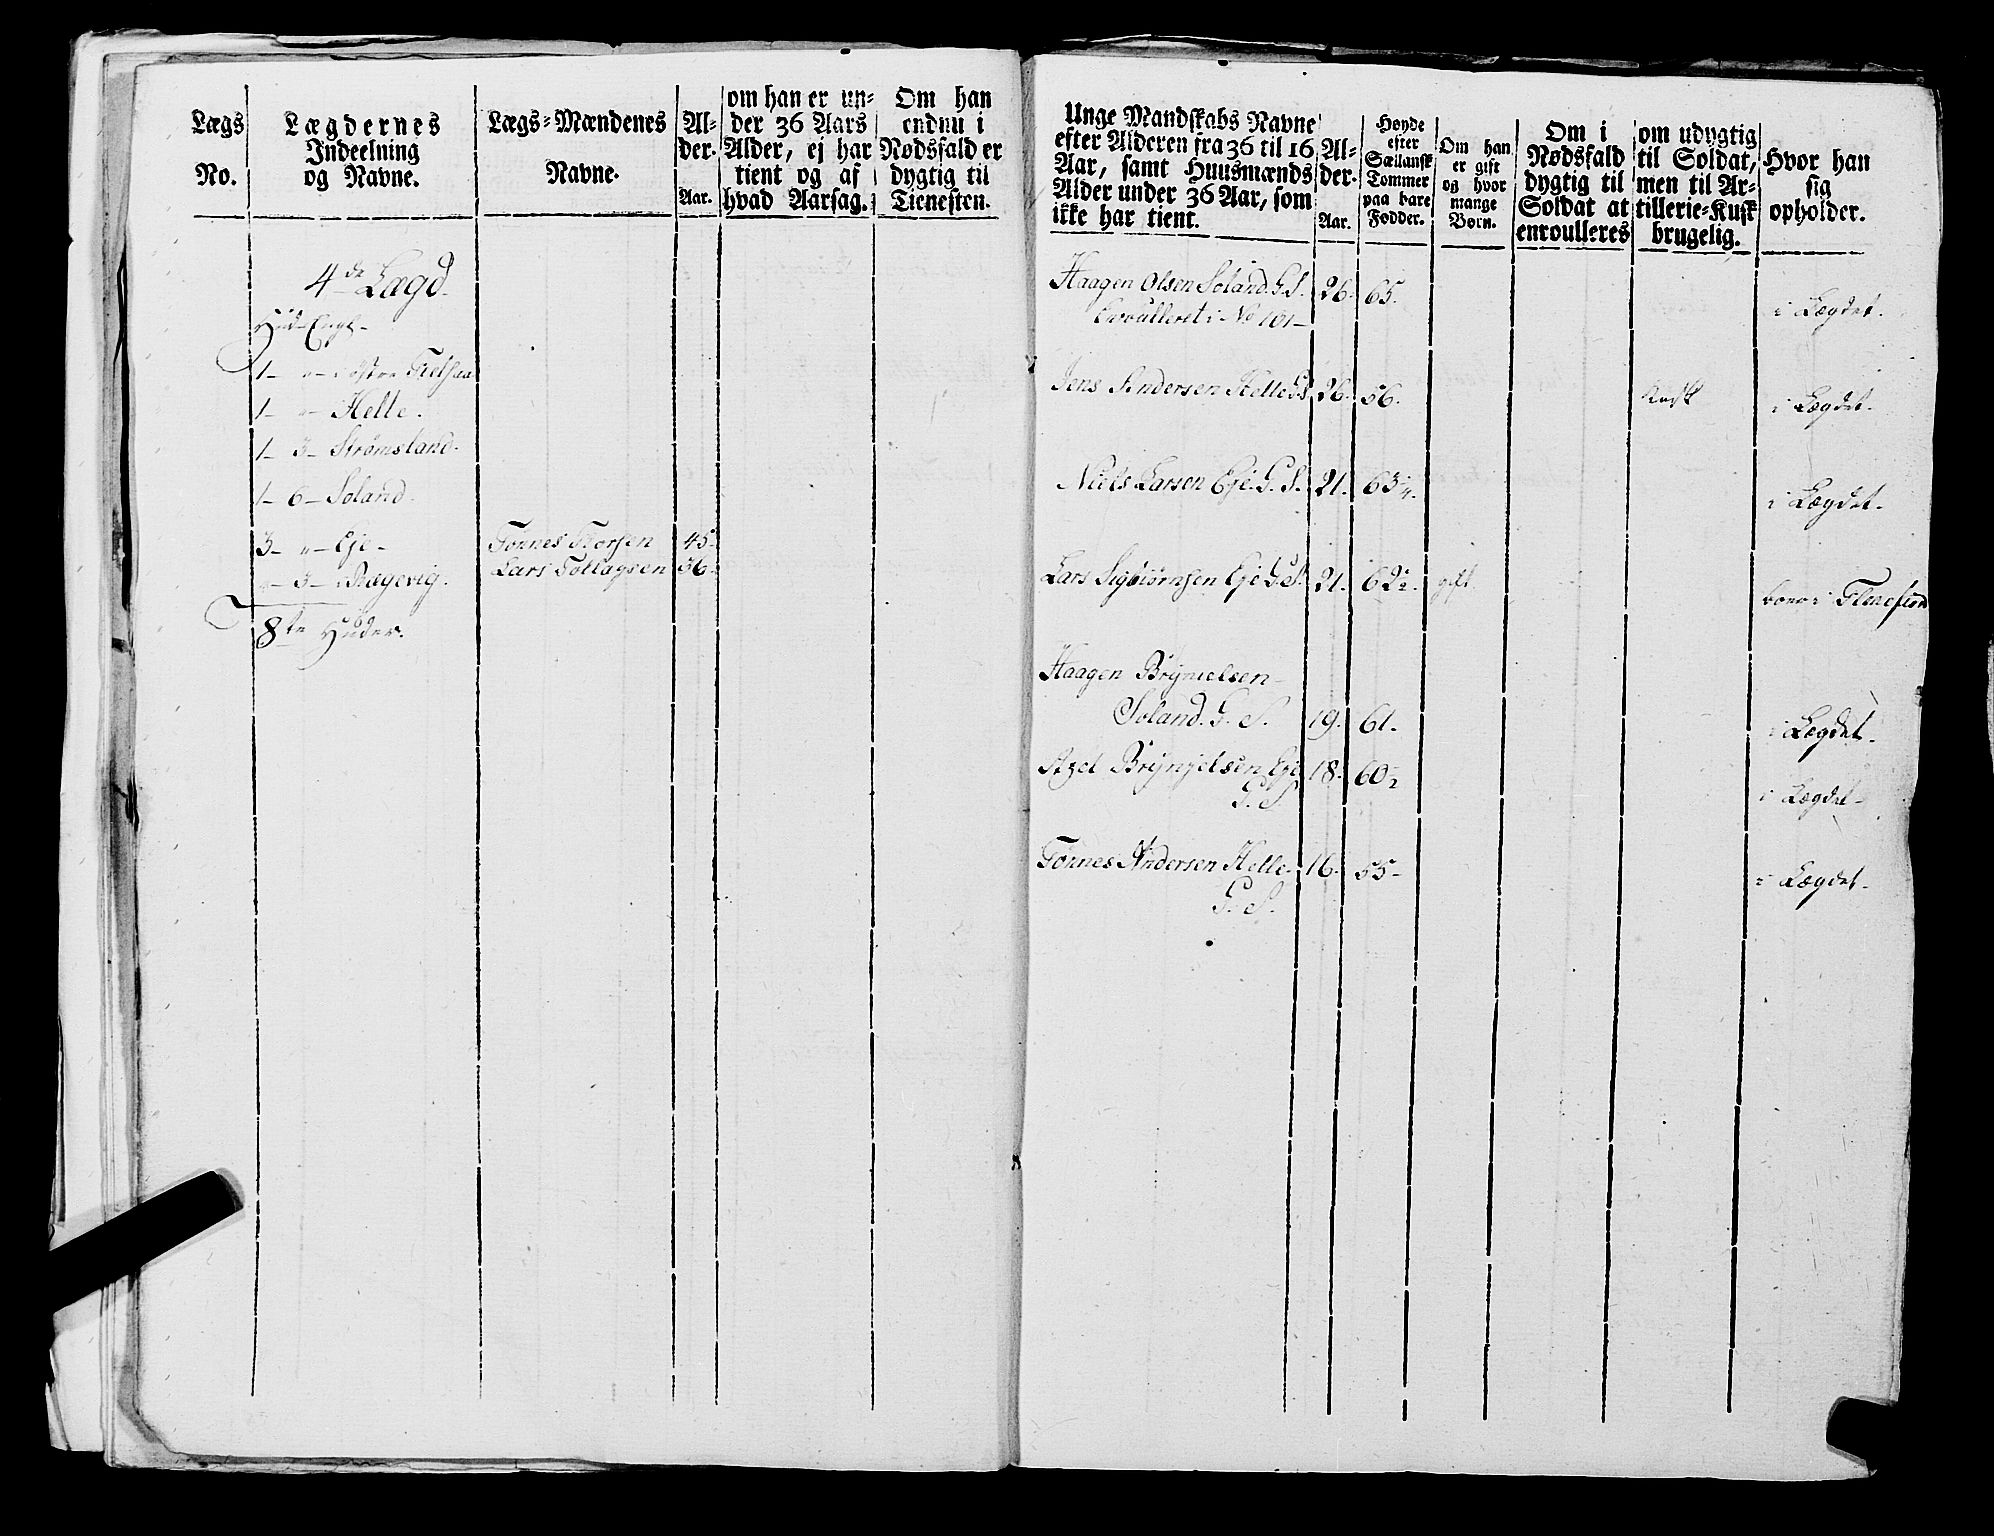 Lægs
No.
Lægdernes
Indeelning
og Navne.
Lægs-Mændenes
Navne.
Al-
der.
Aar.
om han er un-
der 36 Aars
Alder, ej har
tient og af
hvad Aarsag.
Om han
endnu i
Nødsfald er
dygtig til
Tienesten.
4de Lægd.
Hud- Engl-
1- " - østre
1- " - Helle.
1- 3- Strømsland.
1- 6- Soland.
3- " - Eje- Tønnes Torsen 45.
" - 3- Rægevig. Lars Tollagsen 36.
8te Huder.
Unge Mandskabs Navne
efter Alderen fra 36 til 16
Aar, samt Huusmænds
Alder under 36 Aar, som
ikke har tient.
Al-
der.
Aar.
Høyde
efter
Sællansk
Tommer
paa bare
Fødder.
Om han
er gift
og hvor
mange
Børn.
Om i
Nødsfald
dygtig til
Soldat at
enroulleres
om udygtig
til Soldat,
men til Ar-
tillerie-Kusk
brugelig.
Hvor han
sig
opholder.
Haagen Olsen Soland. G. S. 26. 65. i Lægdet.
Enroulleret i No 101-
Jens Andersen Helle G S 26. 56. Kusk i Lægdet.
Niels Larsen Eje. G. S. 21. 63 1/4. i Lægdet.
Lars Sigbiørnsen Eje G. S. 21. 62 1/2. gift boer i
Haagen Brynielsen
Soland. G. S. 19. 61. i Lægdet.
Axel Brynjelsen Eje 18. 60 1/2 i Lægdet-
G. S
Tønnes Andersen Helle. 16. 55- i Lægdet-
G. S.